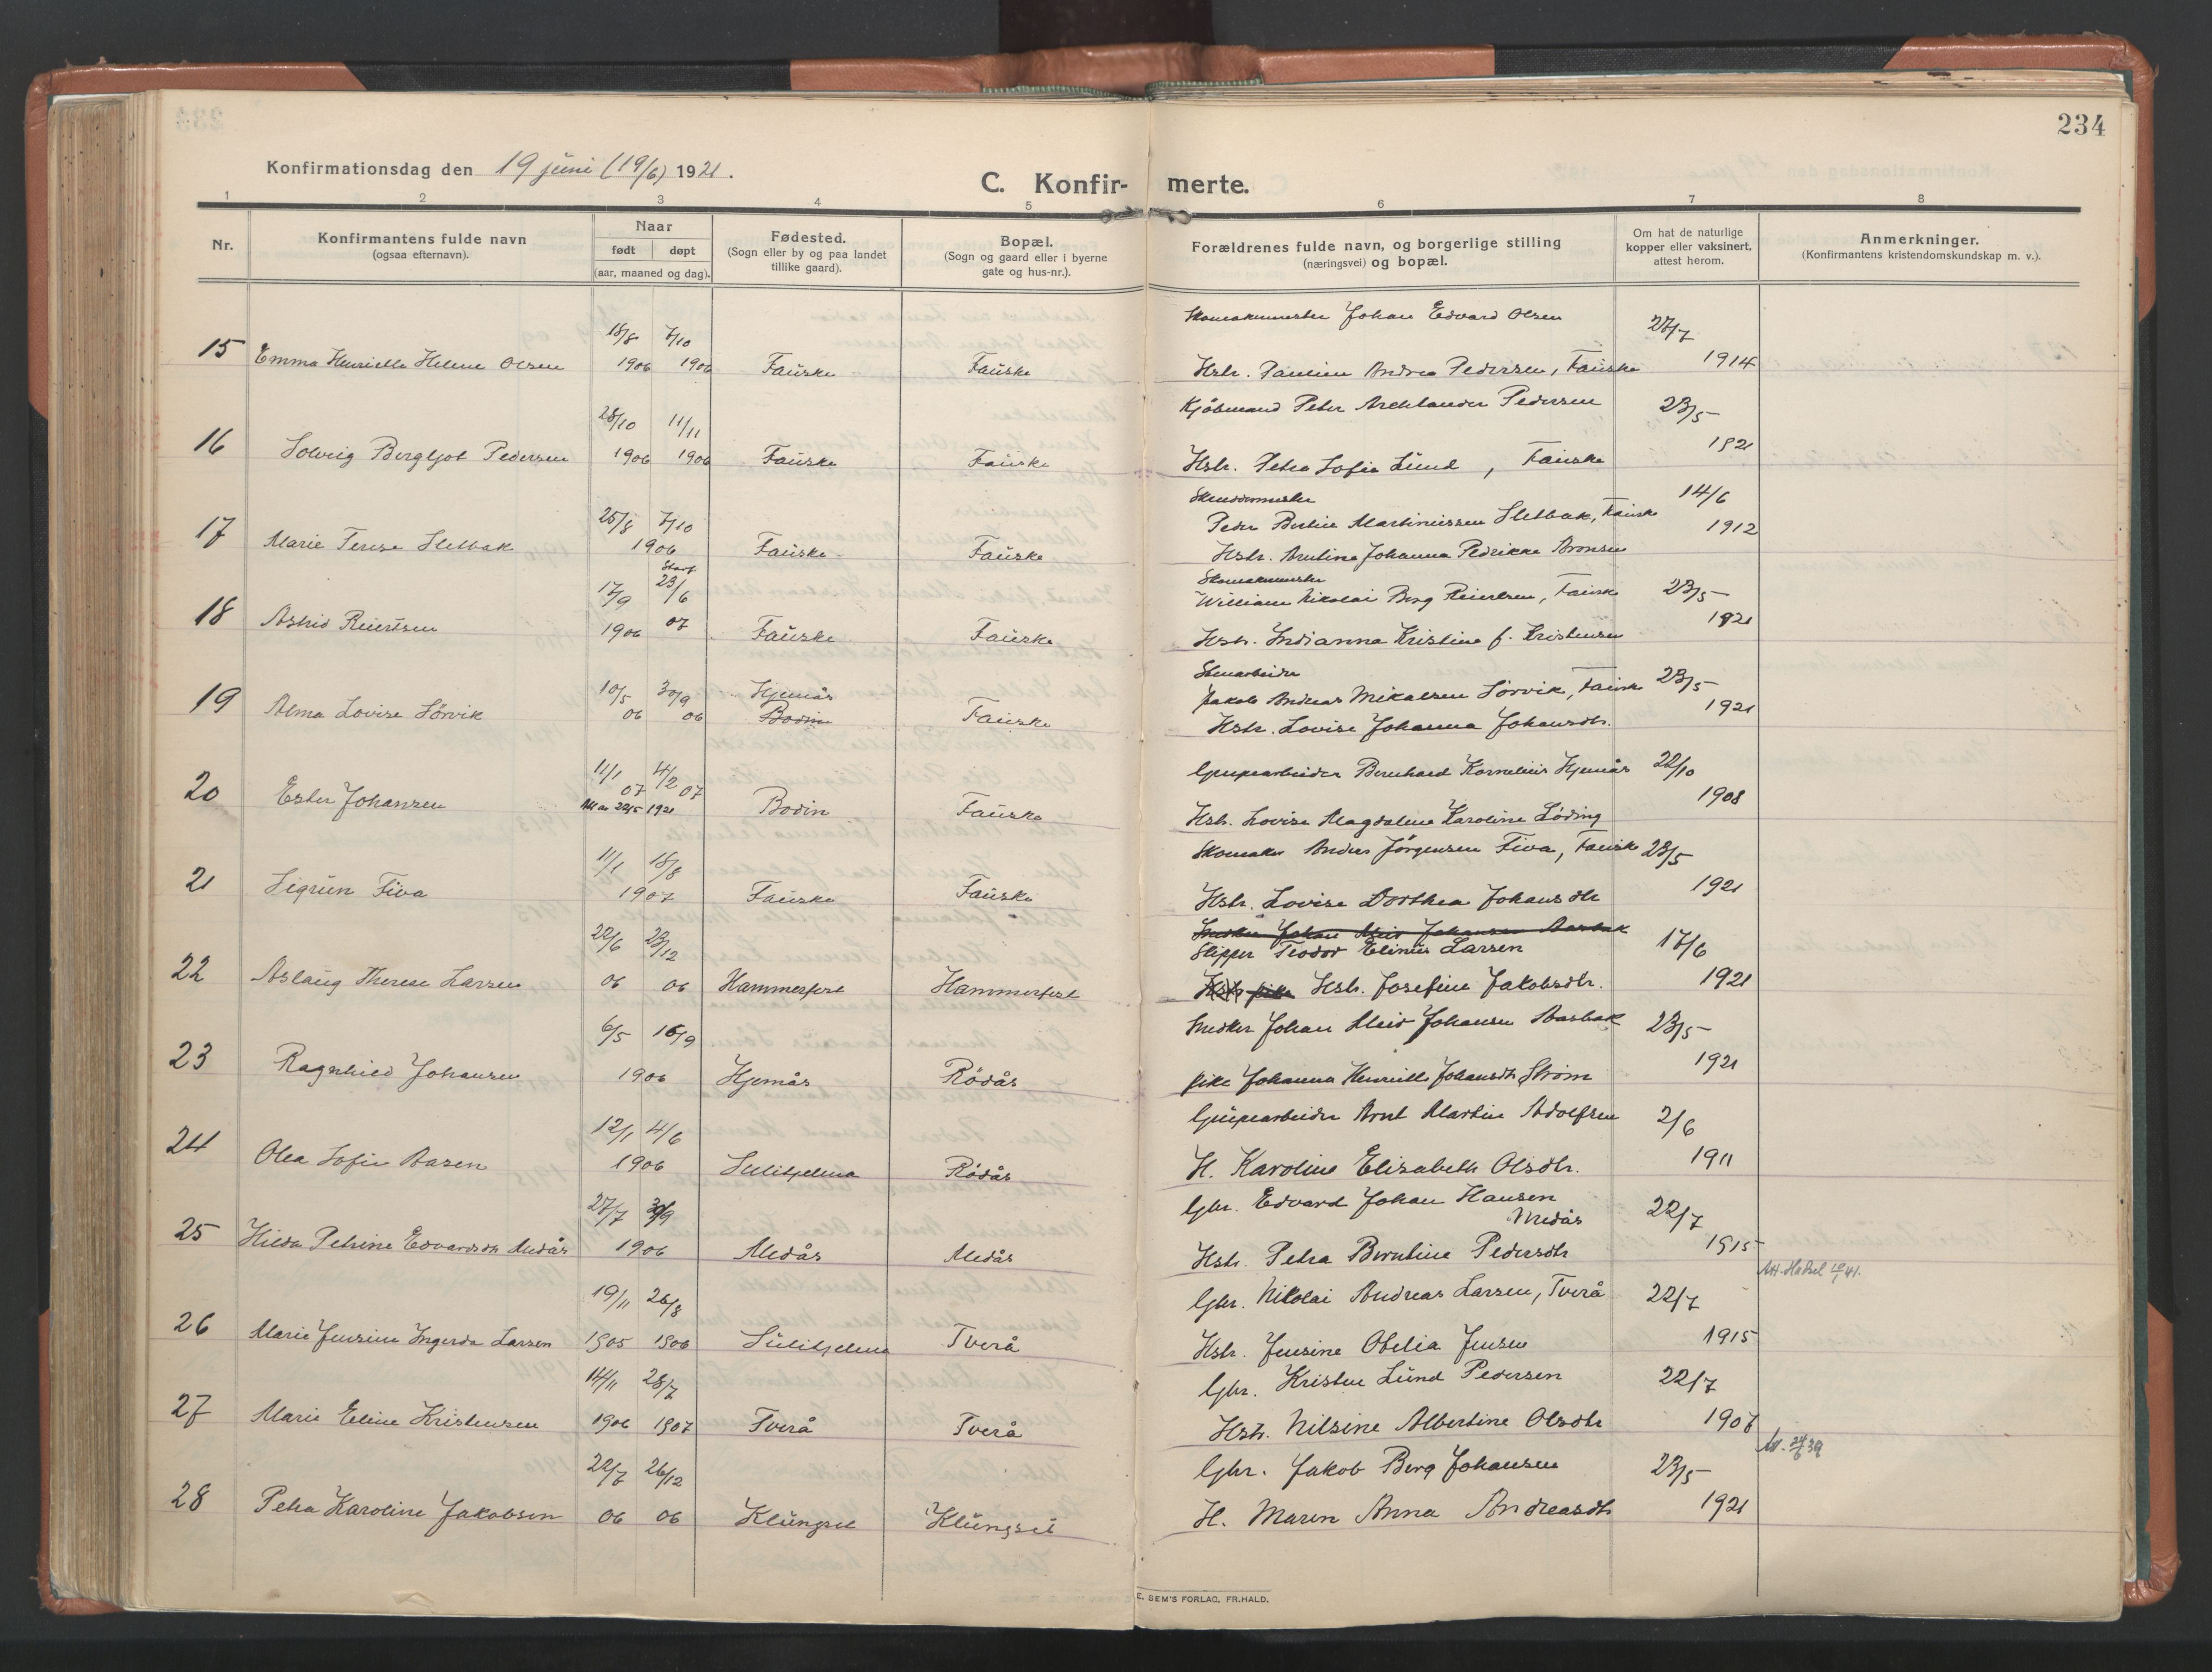 234
Konfirmationsdag den 19 juni (19/6) 1921.
C. Konfir- merte.
1 2 3 4 5 6 7 8
Nr.
Konfirmantens fulde navn
(ogsaa efternavn).
Naar
født døpt
(aar, maaned og dag).
Fødested.
(Sogn eller by og paa landet
tillike gaard).
Bopæl.
(Sogn og gaard eller i byerne
gate og hus-nr.).
Forældrenes fulde navn, og borgerlige stilling
(næringsvei) og bopæl.
Om hat de naturlige
kopper eller vaksinert,
attest herom.
Anmerkninger.
(Konfirmantens kristendomskundskap m. v.).
18/8 7/10 Skomakermester Johan Edvard Olsen 27/7
15 Emma Henriette Helene Olsen 1906 1906 Fauske Fauske Hstr. Pauline Andrea Pedersen, Fauske 1914
28/10 11/11 Kjøbmand Peter Pedersen 23/5
16 Solveig Bergljot Pedersen 1906 1906 Fauske Fauske Hstr. Petra Sofie Lund, Fauske 1921
Skræddermester 14/6
25/8 7/10 Peder Bertin Martinussen Sletbak, Fauske 1912
17 Marie Terese Sletbak 1906 Fauske Fauske Hstr. Arntine Johanna Pedrikke Aronsen
Skomakermester
17/9 23/6 William Nikolai Berg Reiertsen, Fauske 23/5
18 Astrid Reiertsen 1906 07 Fauske Fauske Hstr. Indianna Kristine f. Kristensen 1921
Stenarbeider
10/5 30/9 Hjemås Jakob Andreas Mikalsen Sørvik, Fauske 23/5
19 Alma Lovise Sørvik 06 06 Bodin Fauske Hstr. Lovise Johanna Johansdtr. 1921
11/1 4/2 Grubearbeider Bernhard Kornelius Hjemås 22/10
20 Ester Johansen 07 07 Bodin Fauske Hstr. Lovise Magdalene Karoline Løding 1908
1921
11/1 18/8 Skomaker Anders Jørgensen Fiva, Fauske 23/5
21 Sigrun Fiva 1907 Fauske Fauske Hstr. Lovise Dorthea Johansdtr 1921
Snedker Johan Johansen
22/6 23/12 Slipper Teodor Elinus Larsen 17/6
22 Aslaug Therese Larsen 06 06 Hammerfest Hammerfest Hstr pike Hstr. Josefine Jakobsdtr. 1921
6/5 16/9 Snedker Johan Johansen 23/5
23 Ragnhild Johansen 1906 Hjemås Rødås pike Johanna Henriette Johansdtr Strøm 1921
12/1 4/6 Grubearbeider Arnt Martin Adolfsen 2/6
24 Olea Sofie Aasen 1906 Sulitjelma Rødås H. Karoline Elisabeth Olsdtr. 1911
27/7 30/9 Gbr. Edvard Johan Hansen 22/7
Medås
25 Hilda Petrine Edvardsdtr Medås 1906 Medås Medås Hstr. Petra Berntine Pedersdtr 1915
Att. Hadsel 10/1 41.
19/11 26/8 Gbr. Nikolai Andreas Larsen, Tverå 22/7
26 Marie Jensine Ingerda Larsen 1905 1906 Sulitjelma Tverå Hstr. Jensine Otelia Jensen 1915
14/11 28/7 Gbr. Kristen Lund Pedersen 22/7
27 Marie Eline Kristensen 1906 1907 Tverå Tverå Hstr. Nilsine Albertine Olsdtr 1907
22/7 26/12 Gbr. Jakob Berg Johansen 23/5
28 Petra Karoline Jakobsen 06 06 Klungset Klungset H. Maren Anna Andreasdtr 1921
E. SEM'S FORLAG, FR.HALD.